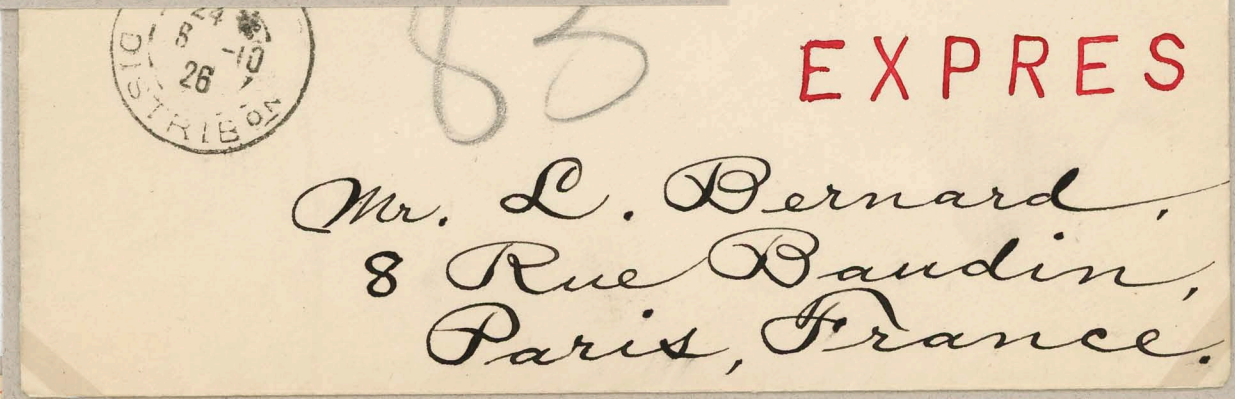 24
8 -10
26
DISTRIBON
83
EXPRES
Mr. L. Bernard,
8 Rue Baudin,
Paris, France.